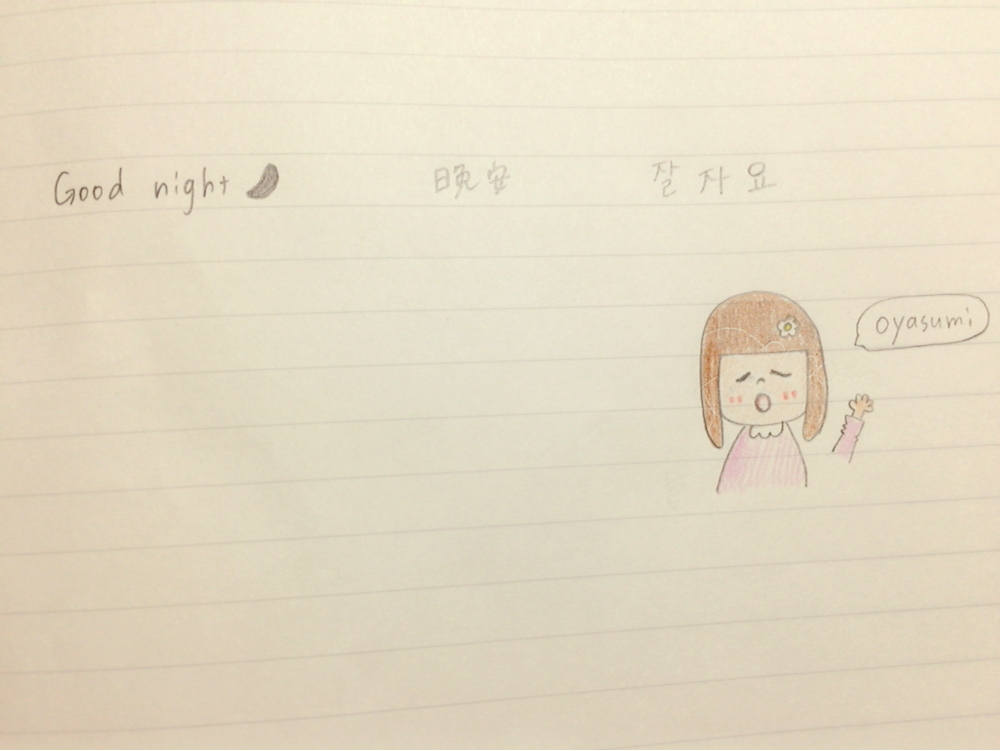 Good night 晩安 잘자요
oyasumi